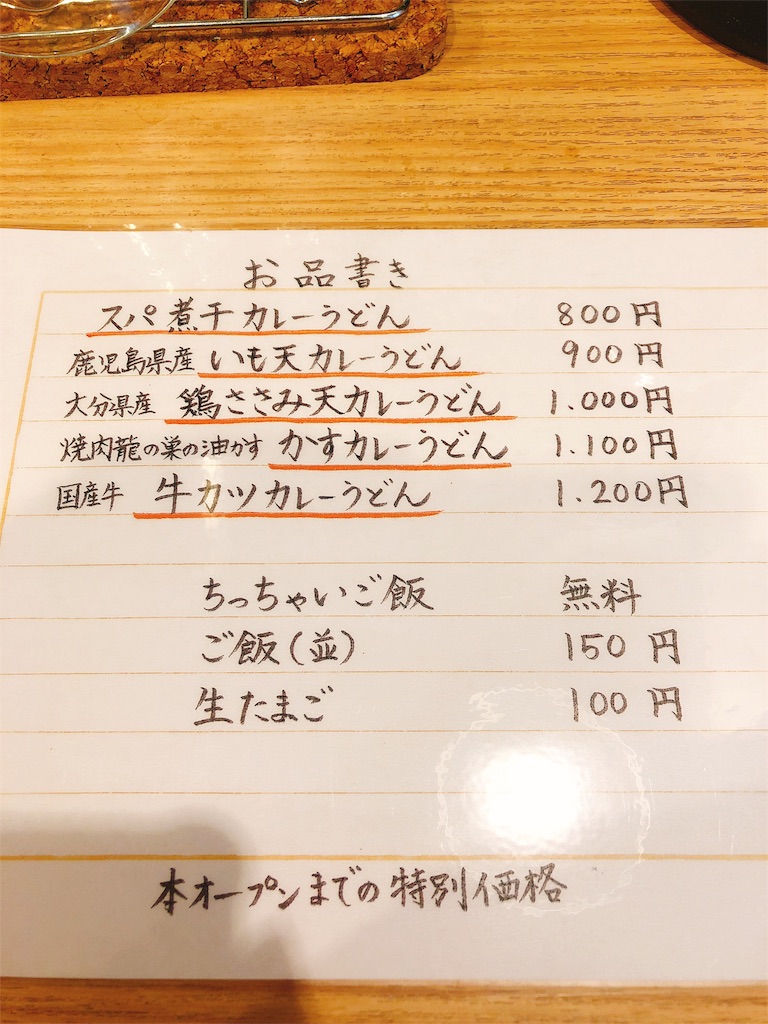 お品書き
スパ煮干カレーうどん 800円
鹿児島県産 いも天カレーうどん 900円
大分県産 鶏ささみ天カレーうどん 1.000円
焼肉龍の巣の油かす かすカレーうどん 1.100円
国産牛 牛カツカレーうどん 1.200円
ちっちゃいご飯 無料
ご飯(並) 150円
生たまご 100円
本オープンまでの特別価格